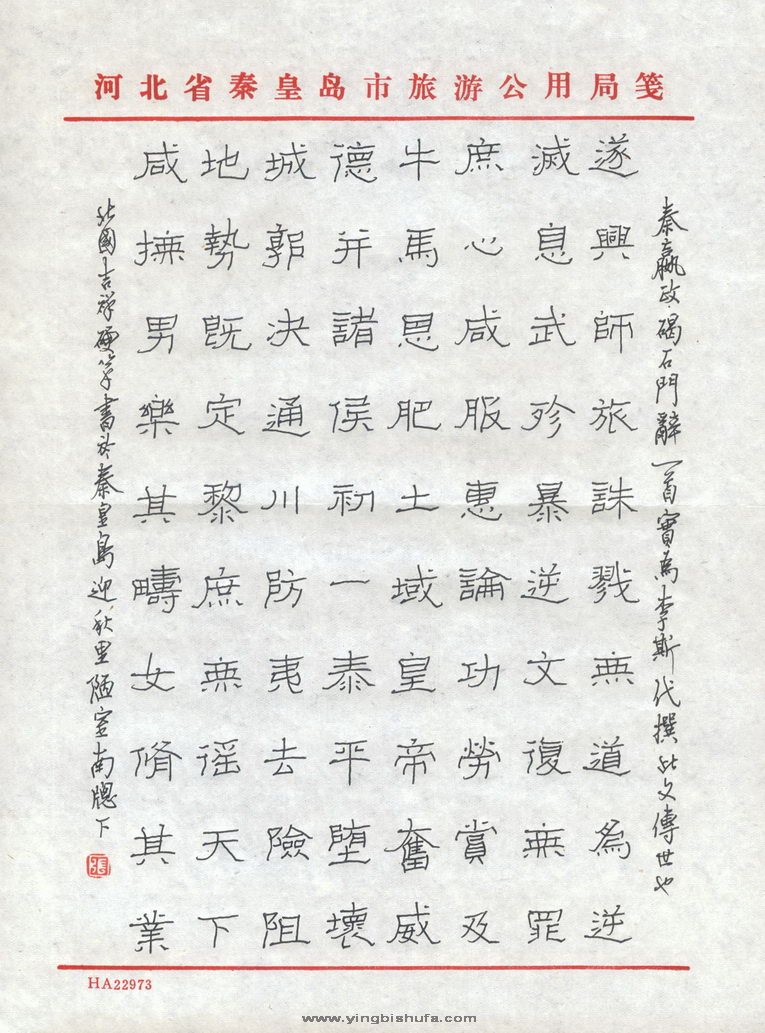 河北省秦皇岛市旅游公用局笺
秦嬴政碣石門辭一首實為李斯代撰此文傳世也
遂興師旅誅戮無道為逆
滅息武殄暴逆文復無罪
庶心咸服惠論功勞賞及
牛馬恩肥土域皇帝奮威
德并諸侯初一泰平堕壞
城郭决通川防夷去險阻
地勢既定黎庶無徭天下
咸撫男樂其疇女脩其業
北國吉祥硬筆書於秦皇島迎秋里陋室南牕下
張
HA22973
www.yingbishufa.com